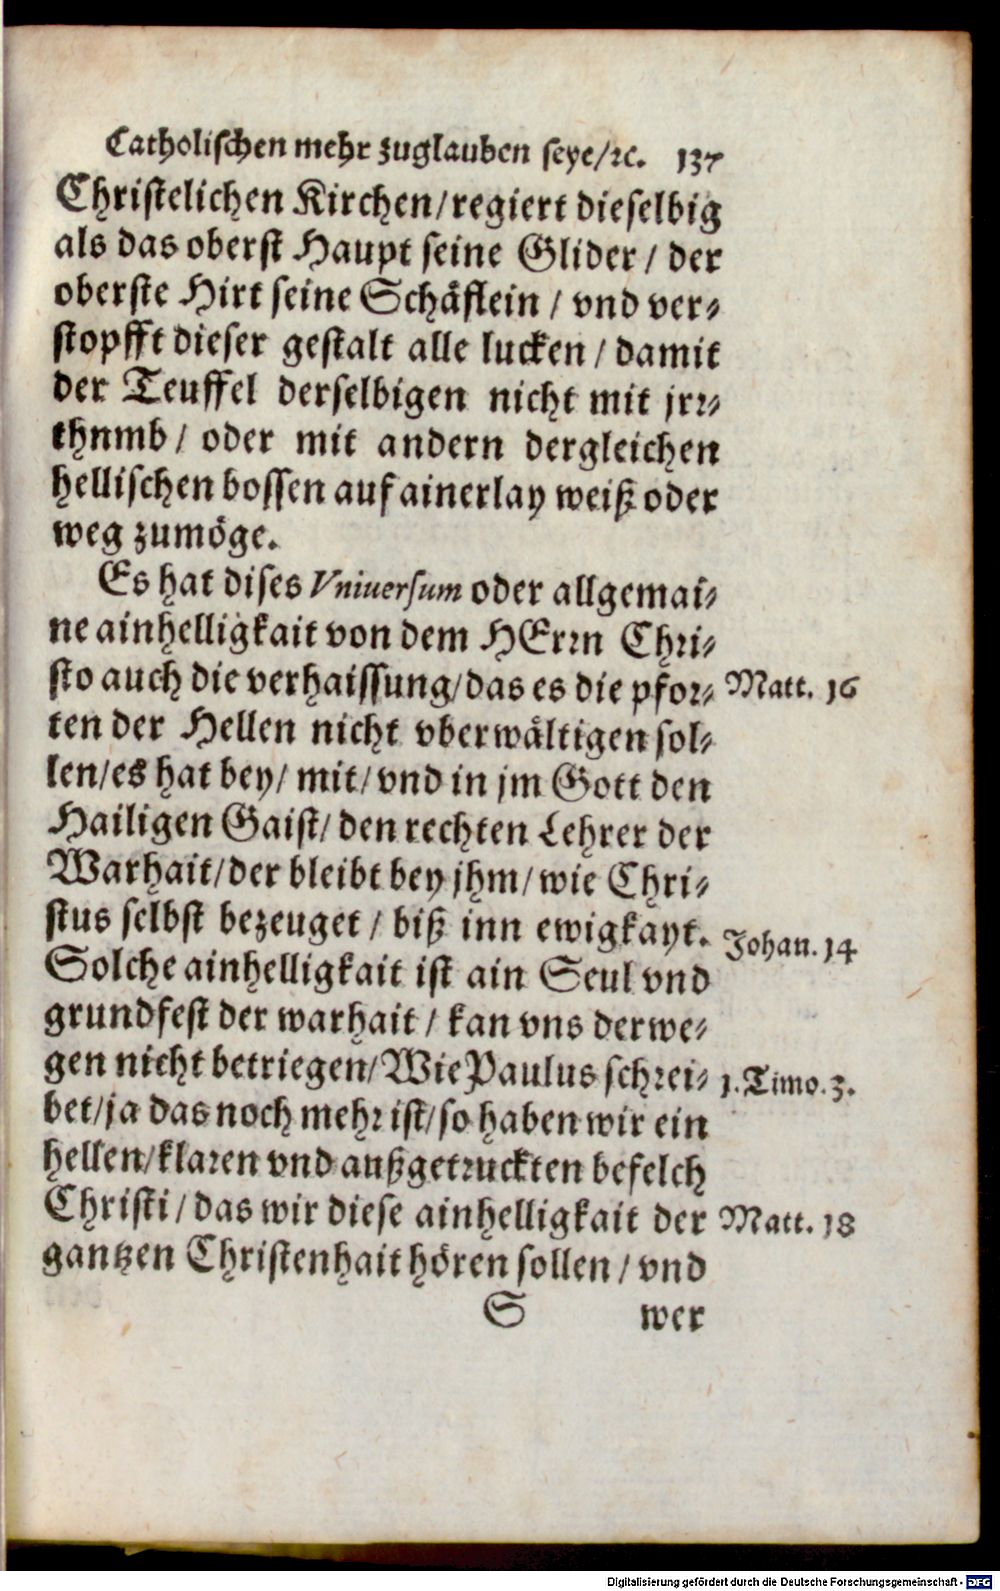 Catholischen mehr zuglauben seye/ꝛc. 137
Christelichen Kirchen/regiert dieselbig
als das oberst Haupt seine Glider / der
oberste Hirt seine Schäflein / vnd ver-
stopfft dieser gestalt alle lucken / damit
der Teuffel derselbigen nicht mit jrr-
thnmb / oder mit andern dergleichen
hellischen bossen auf ainerlay weiß oder
weg zumöge.
Es hat dises Vniuersum oder allgemai-
ne ainhelligkait von dem HErrn Chri-
sto auch die verhaissung/das es die pfor- Matt. 16
ten der Hellen nicht vberwältigen sol-
len/es hat bey/ mit/ vnd in jm Gott den
Hailigen Gaist/ den rechten Lehrer der
Warhait/der bleibt bey jhm/ wie Chri-
stus selbst bezeuget / biß inn ewigkayt. Johan. 14
Solche ainhelligkait ist ain Seul vnd
grundfest der warhait / kan vns derwe-
gen nicht betriegen/Wie Paulus schrei- 1. Timo. 3.
bet/ja das noch mehr ist/so haben wir ein
hellen/klaren vnd außgetruckten befelch
Christi / das wir diese ainhelligkait der Matt. 18
gantzen Christenhait hören sollen / vnd
S wer
Digitalisierung gefördert durch die Deutsche Forschungsgemeinschaft - DFG